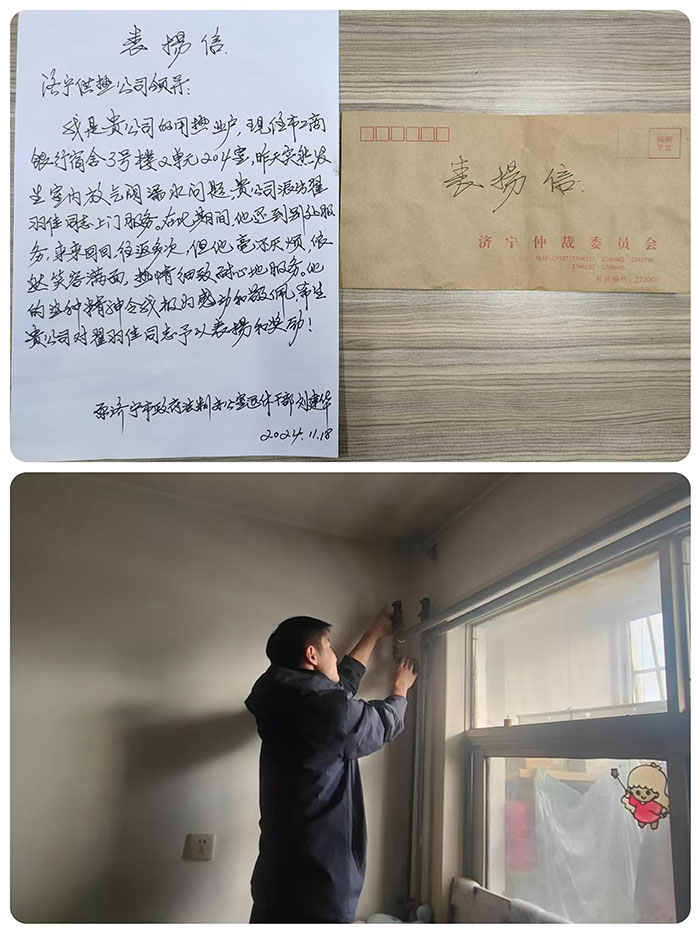 表揚信.
济宁供热公司领导:
我是贵公司的用热业户,现住市工商
银行宿舍3号楼2单元204室,昨天突然发
生室内放气阀漏水问题,贵公司派出翟
羽佳同志上门服务。在此期间,他还到别处服
务,来来回回,往返多次,但他毫不厌烦,依
然笑容满面,热情细致耐心地服务。他
的这种精神令我极为感动和敬佩,希望
贵公司对翟羽佳同志予以表揚和奖励!
原济宁市政府法制办公室退休干部 刘建华
2024.11.18
表揚信.
济宁仲裁委员会
邮政编码:272003